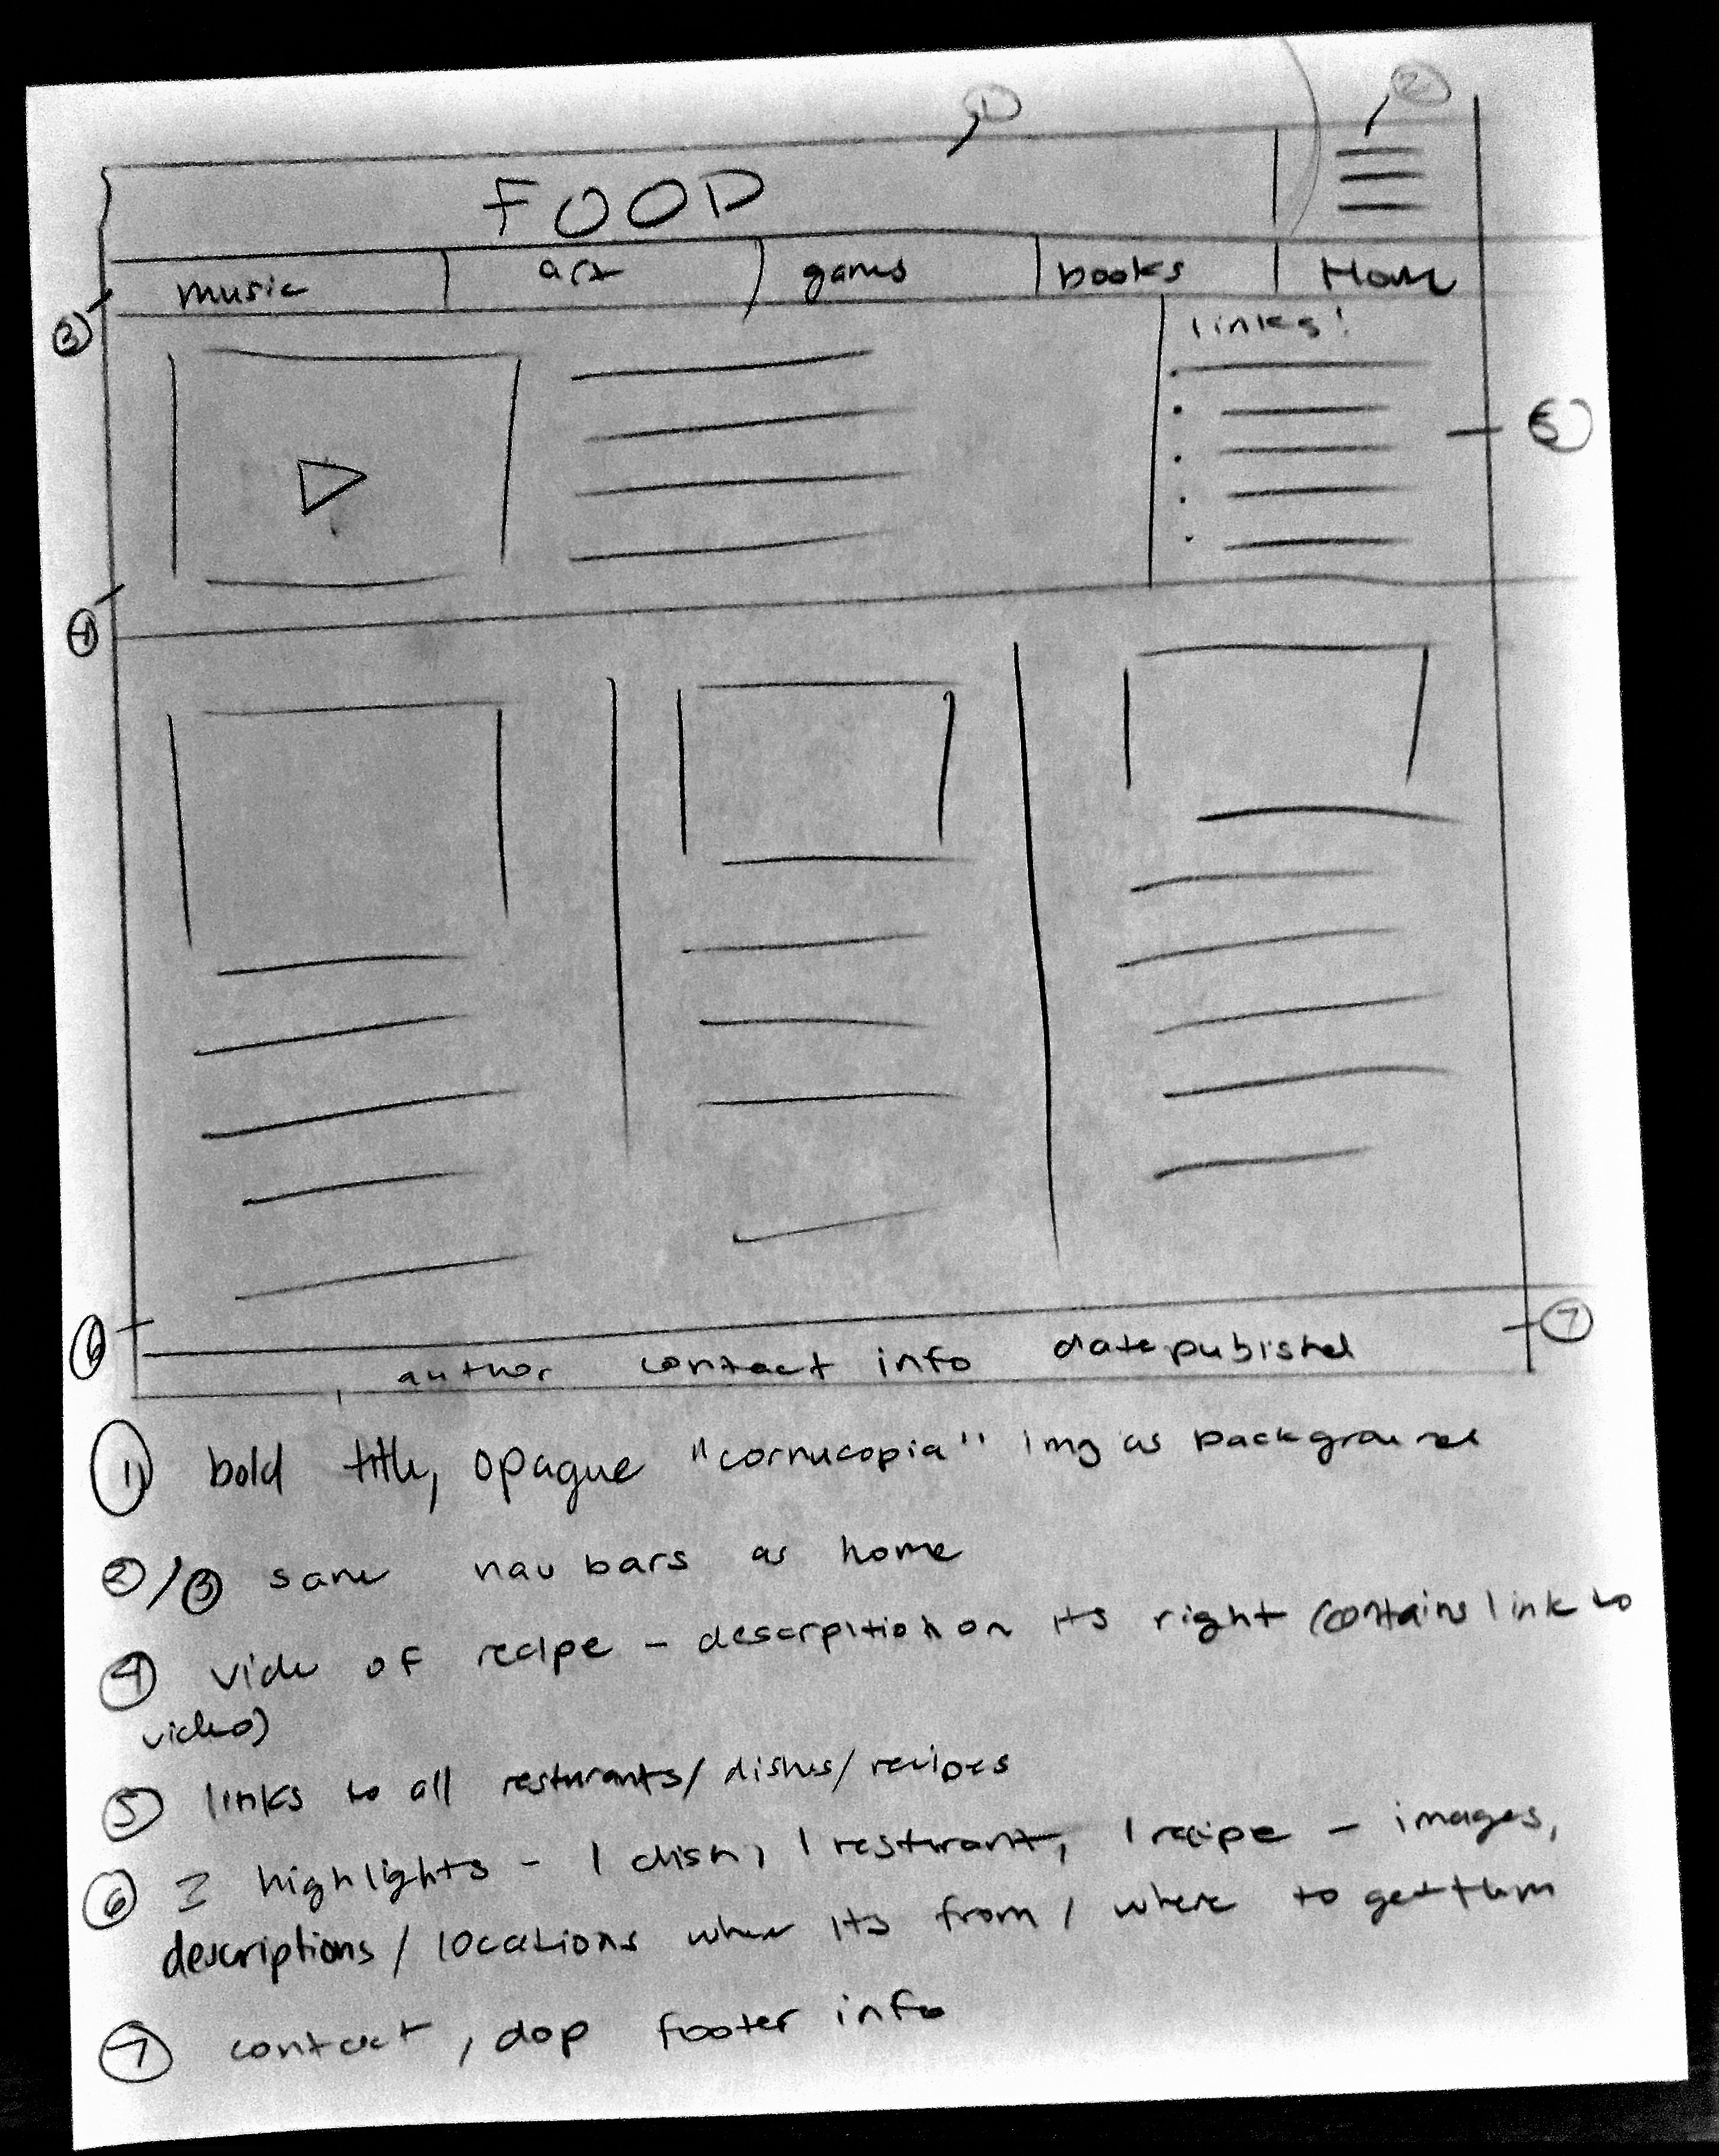 1
2
FOOD
music art games books Home
3
links!
5
4
6
7
author contact info date pubished
1 bold title, opaque "cornucopia" img as background
2/3 same nav bars as home
4 video of recipe - descrpition on its right (contains link to
video)
5 links to all resturants/dishes/recipes
6 3 highlights - 1 dish, 1 resturant, 1 recipe - images,
descriptions/locations where its from / where to get them
7 contact, dop footer info